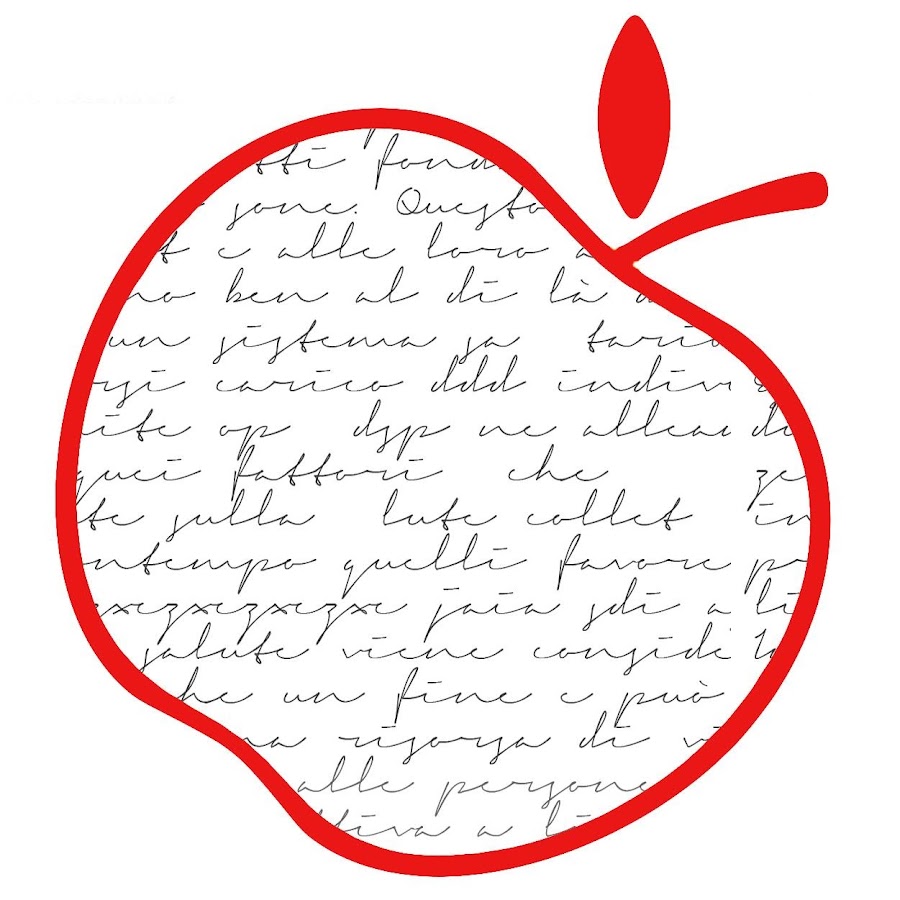 tti fond
sone. Questo
t e alle loro a
no ben al di là d
un sistema sa tario
rsi carico ddd indiv
ite op dsp ne allea di
quei fattori che ze
te sulla lute collet in
ontempo quelli favore po
xezxezxezxe jaia sdi a li
salute viene conside la
he un fine e può
na risorsa di vi
alle persone
ttiva a li